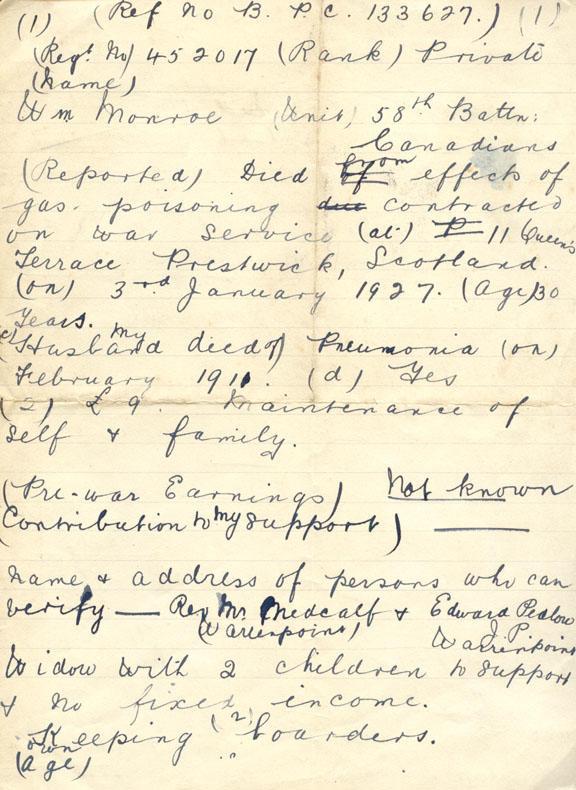 (1) (Ref No B. P. C. 133627.) (1)
(Regt. No) 452017 (Rank) Private
(Name)
Wm Monroe (Unit) 58th Battn:
Canadians
(Reported) Died from effects of
gas poisoning due contracted
on war service (at) P 11 Queen's
Terrace Prestwick, Scotland.
(on) 3rd January 1927. (Age) 30
Years.
(c) Husband my died of) Pneumonia (on)
February 1911. (d) Yes
(2) £9. Maintenance of
self & family.
(Pre-war Earnings) Not known
Contribution to my support)
name & address of persons who can
verify — Rev Mr Medcalf & Edward Pedlow
(Warrenpoint) J. P.
Warrenpoint
Widow with 2 children to support
& no fixed income.
Keeping (2) boarders.
own
(age) "